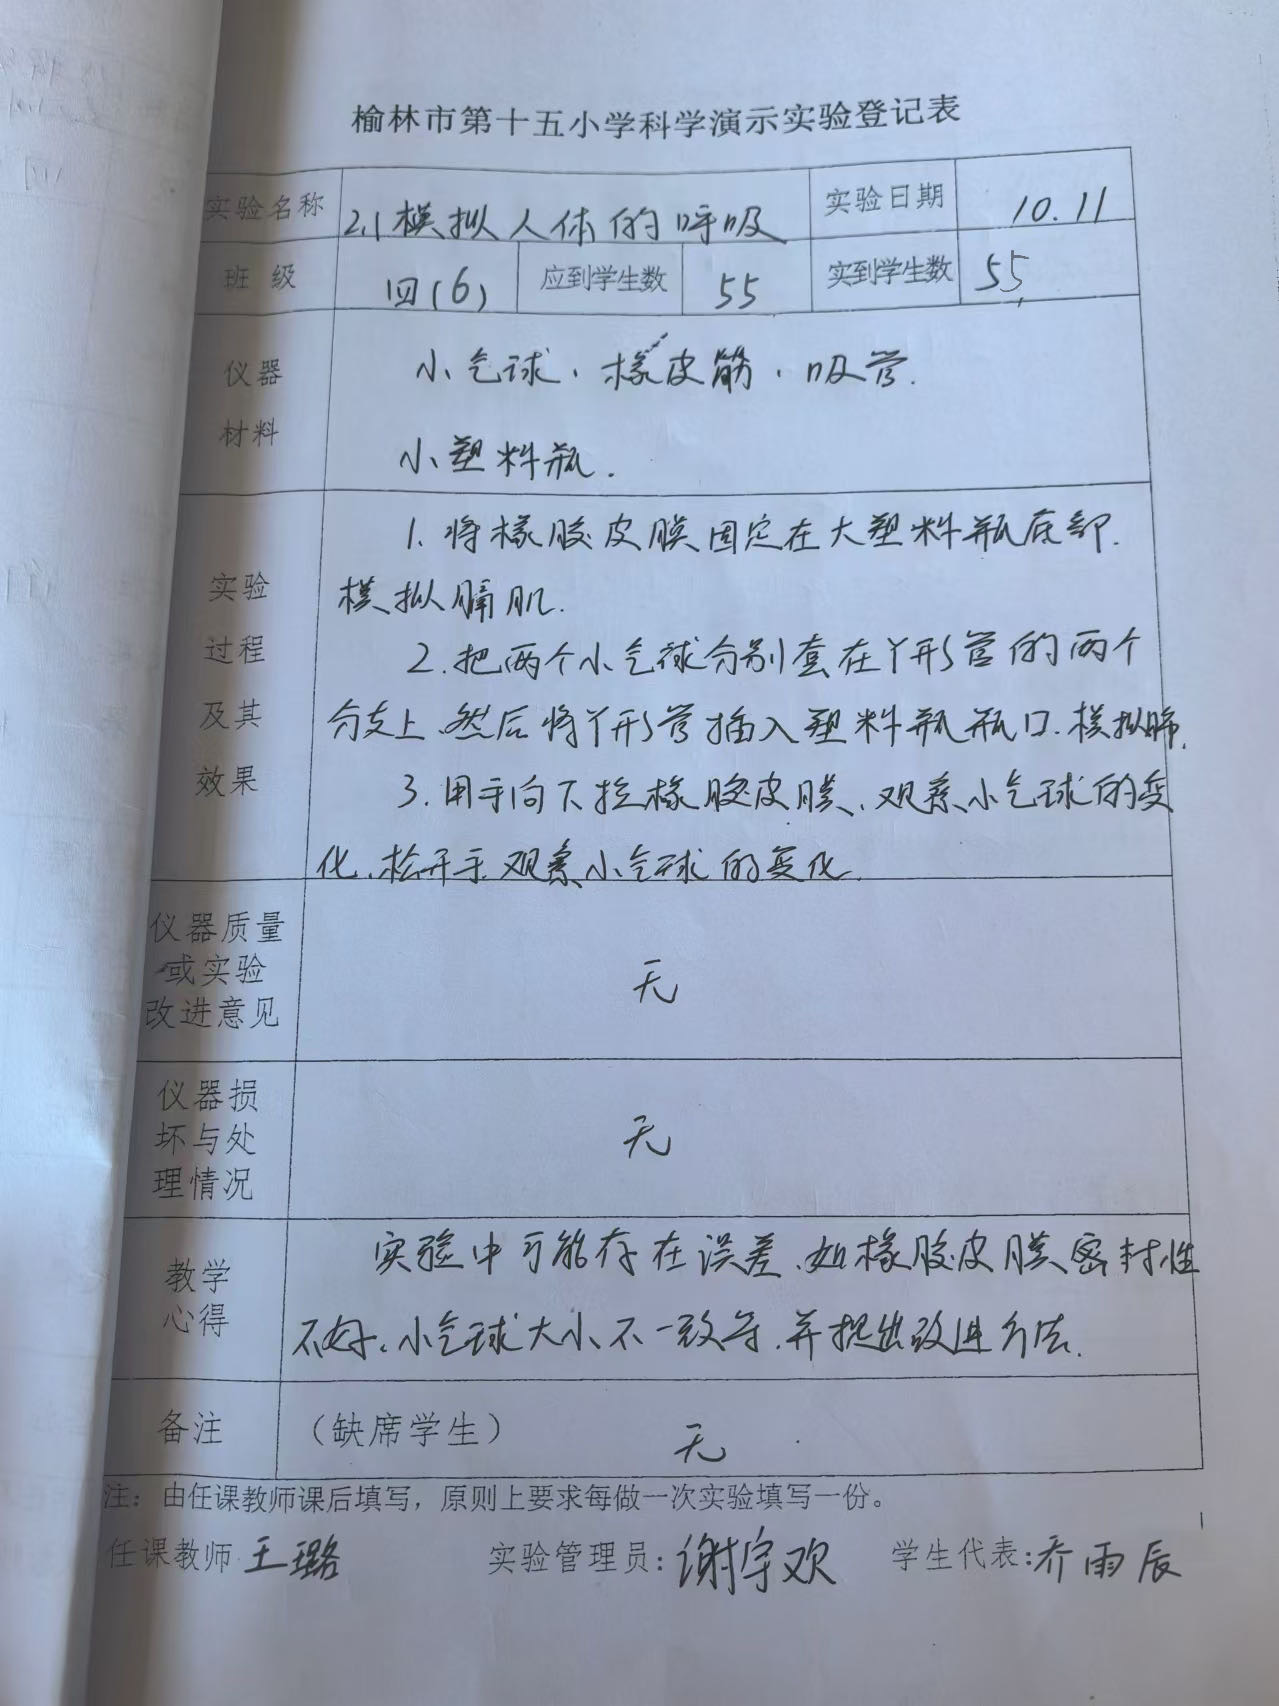 榆林市第十五小学科学演示实验登记表
实验名称 2.1模拟人体的呼吸 实验日期 10.11
班 级 四(6) 应到学生数 55 实到学生数 55
仪器 小气球、橡皮筋、吸管.
材料 小塑料瓶.
实验 1. 将橡胶皮膜固定在大塑料瓶底部.
模拟膈肌.
过程 2. 把两个小气球分别套在丫形管的两个
及其 分支上、然后将丫形管插入塑料瓶瓶口.模拟肺.
效果 3. 用手向下拉橡胶皮膜、观察小气球的变
化、松开手观察小气球的变化.
仪器质量
或实验 无
改进意见
仪器损
坏与处 无
理情况
教学 实验中可能存在误差、如橡胶皮膜密封性
心得 不好、小气球大小不一致等.并提出改进方法.
备注 （缺席学生） 无
注：由任课教师课后填写，原则上要求每做一次实验填写一份。
任课教师 王璐 实验管理员：谢宇欢 学生代表：乔雨辰